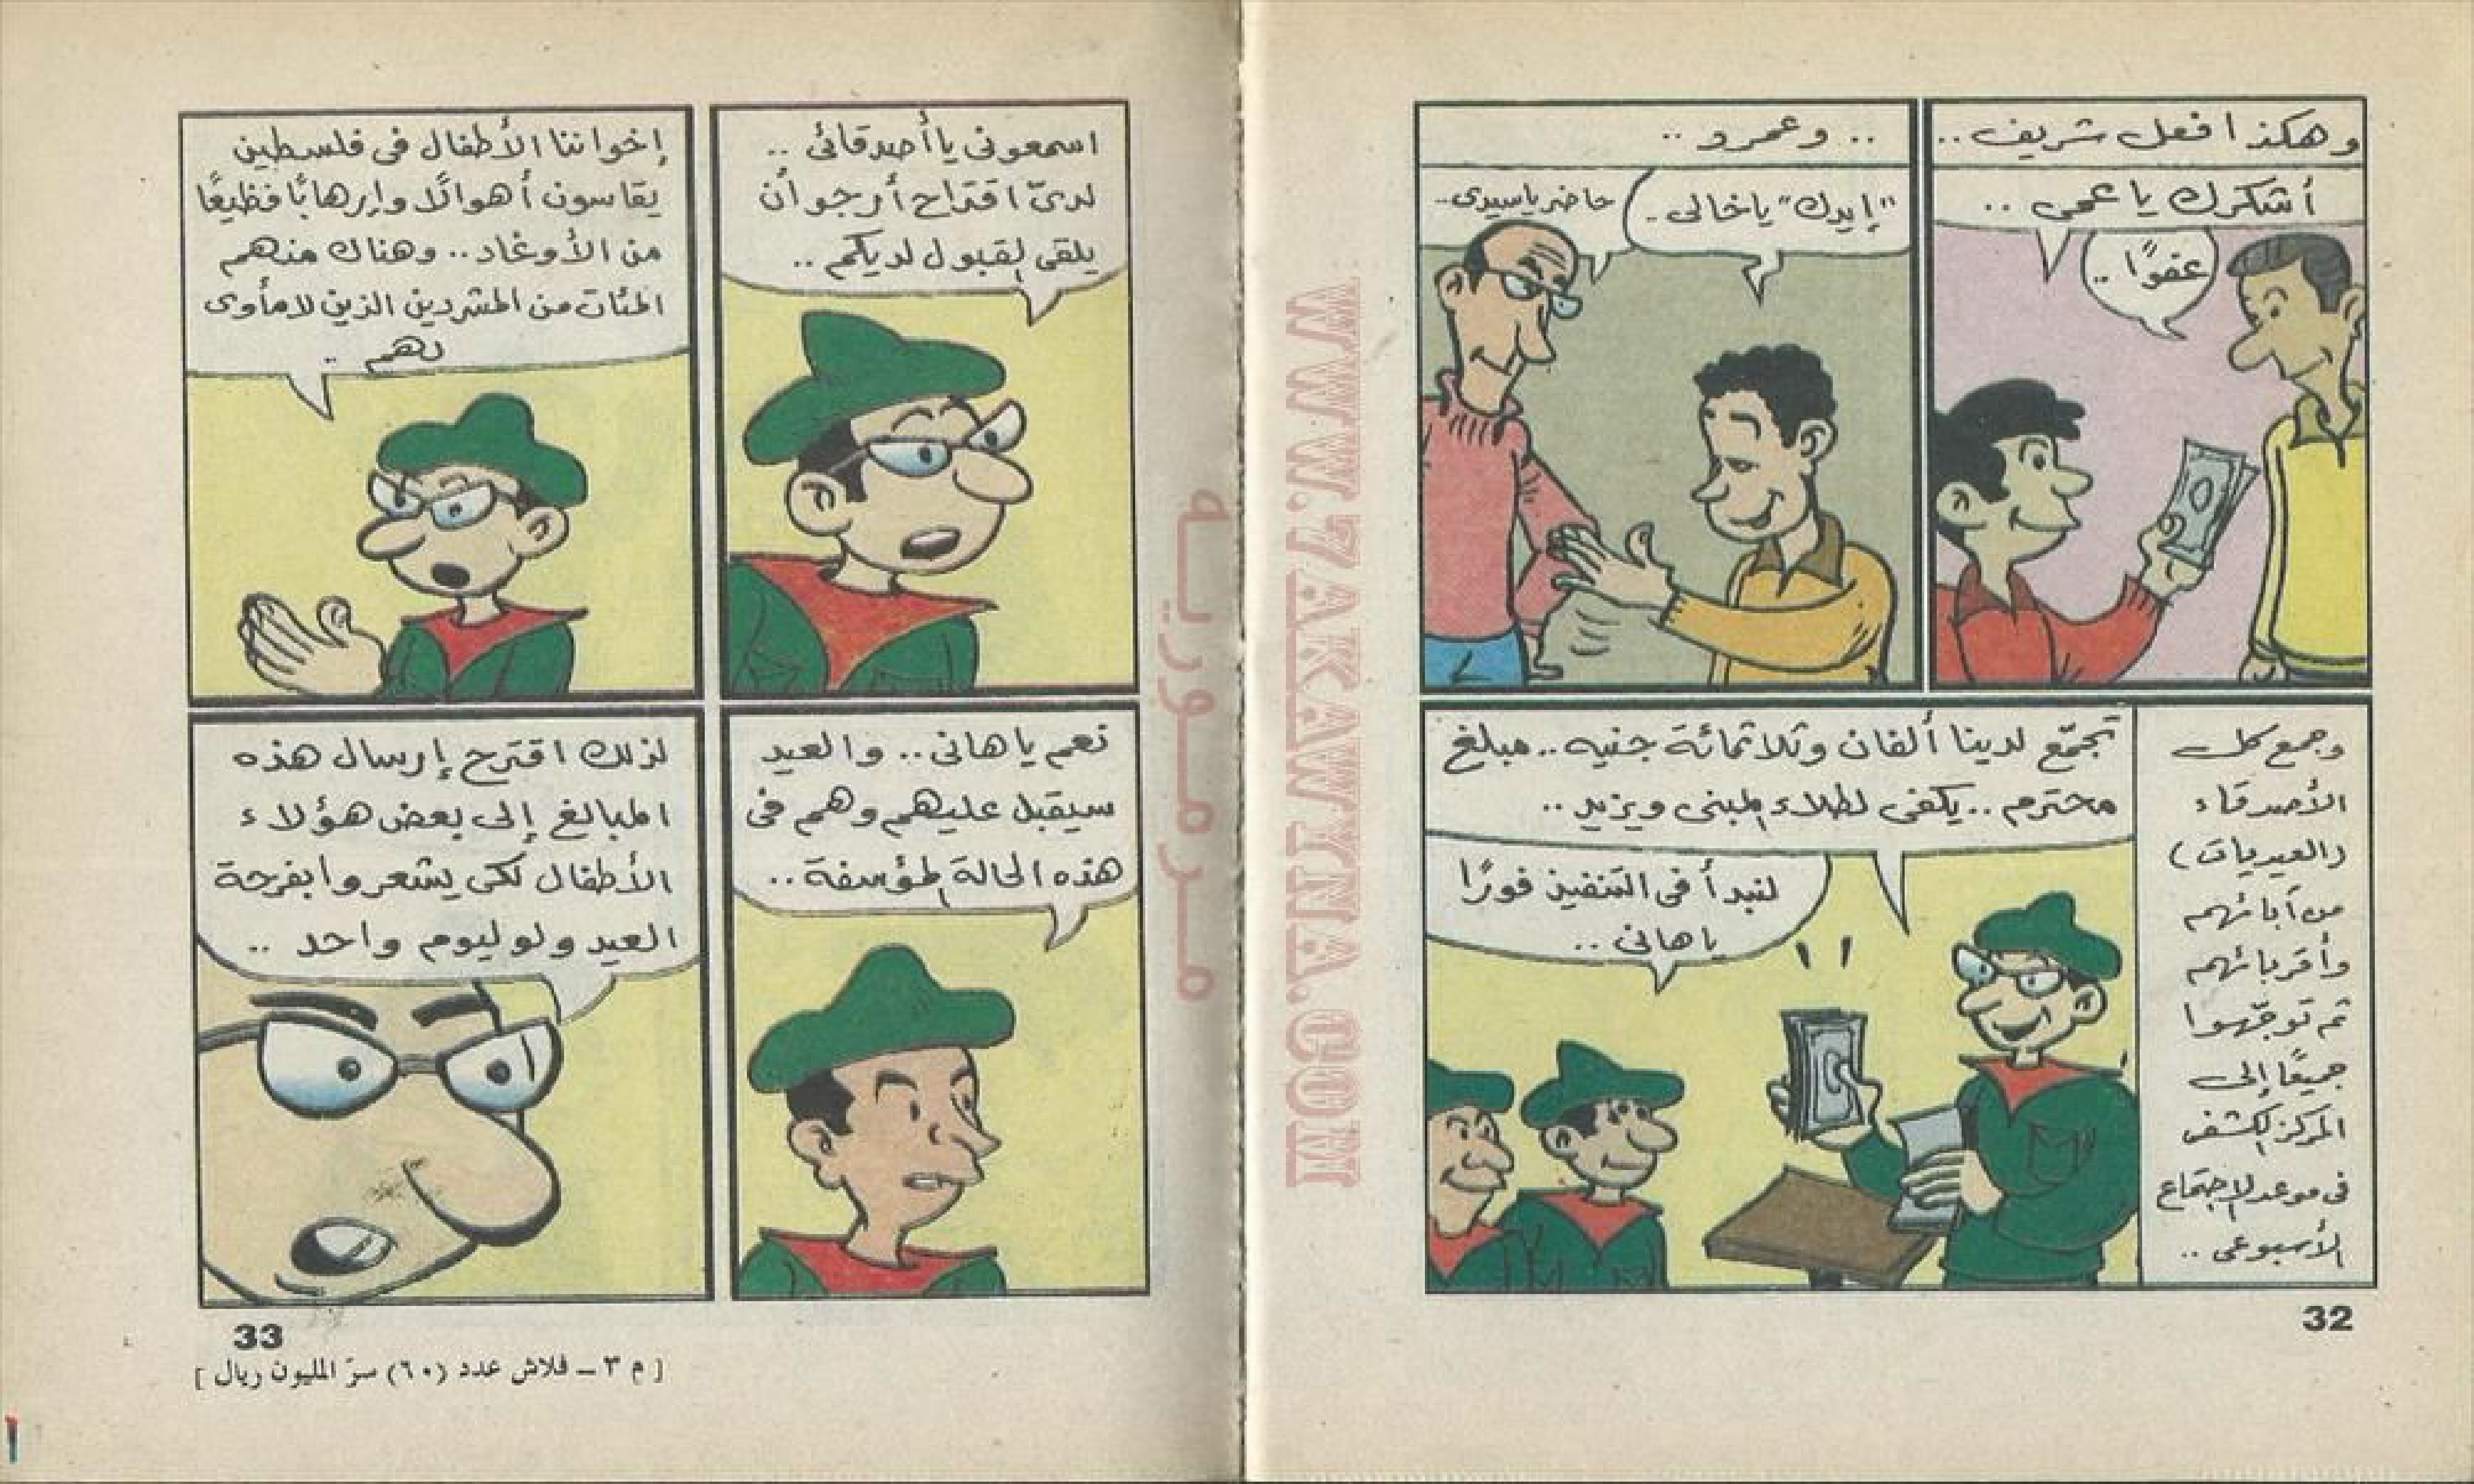 وهكذا فعل شريف ..
أشكرك يا عمى ..
عفوًا ..
.. وعمرو ..
"إيدك" ياخالى ..
حاضر ياسيدى ..
وجمع كل
الأصدقاء
(العيديات)
من آبائهم
وأقربائهم
ثم توجّهوا
جميعًا إلى
المركز الكشفى
فى موعد الاجتماع
الأسبوعى ..
تجمّع لدينا ألفان وثلاثمائة جنيه .. مبلغ
محترم .. يكفى لطلاء المبنى ويزيد ..
لنبدأ فى التنفيذ فورًا
يا هانى ..
32
WWW.ZAKAWINNA.COM
مرمورية
اسمعونى يا أصدقائى ..
لدىّ اقتراح أرجو أن
يلقى القبول لديكم ..
إخواننا الأطفال فى فلسطين
يقاسون أهوالًا وإرهابًا فظيعًا
من الأوغاد .. وهناك منهم
المئات من المشردين الذين لا مأوى
لهم ..
نعم يا هانى .. والعيد
سيقبل عليهم وهم فى
هذه الحالة المؤسفة ..
لذلك اقترح إرسال هذه
المبالغ إلى بعض هؤلاء
الأطفال لكى يشعروا بفرحة
العيد ولو ليوم واحد ..
33
[ م ٣ ـ فلاش عدد (٦٠) سرّ المليون ريال ]